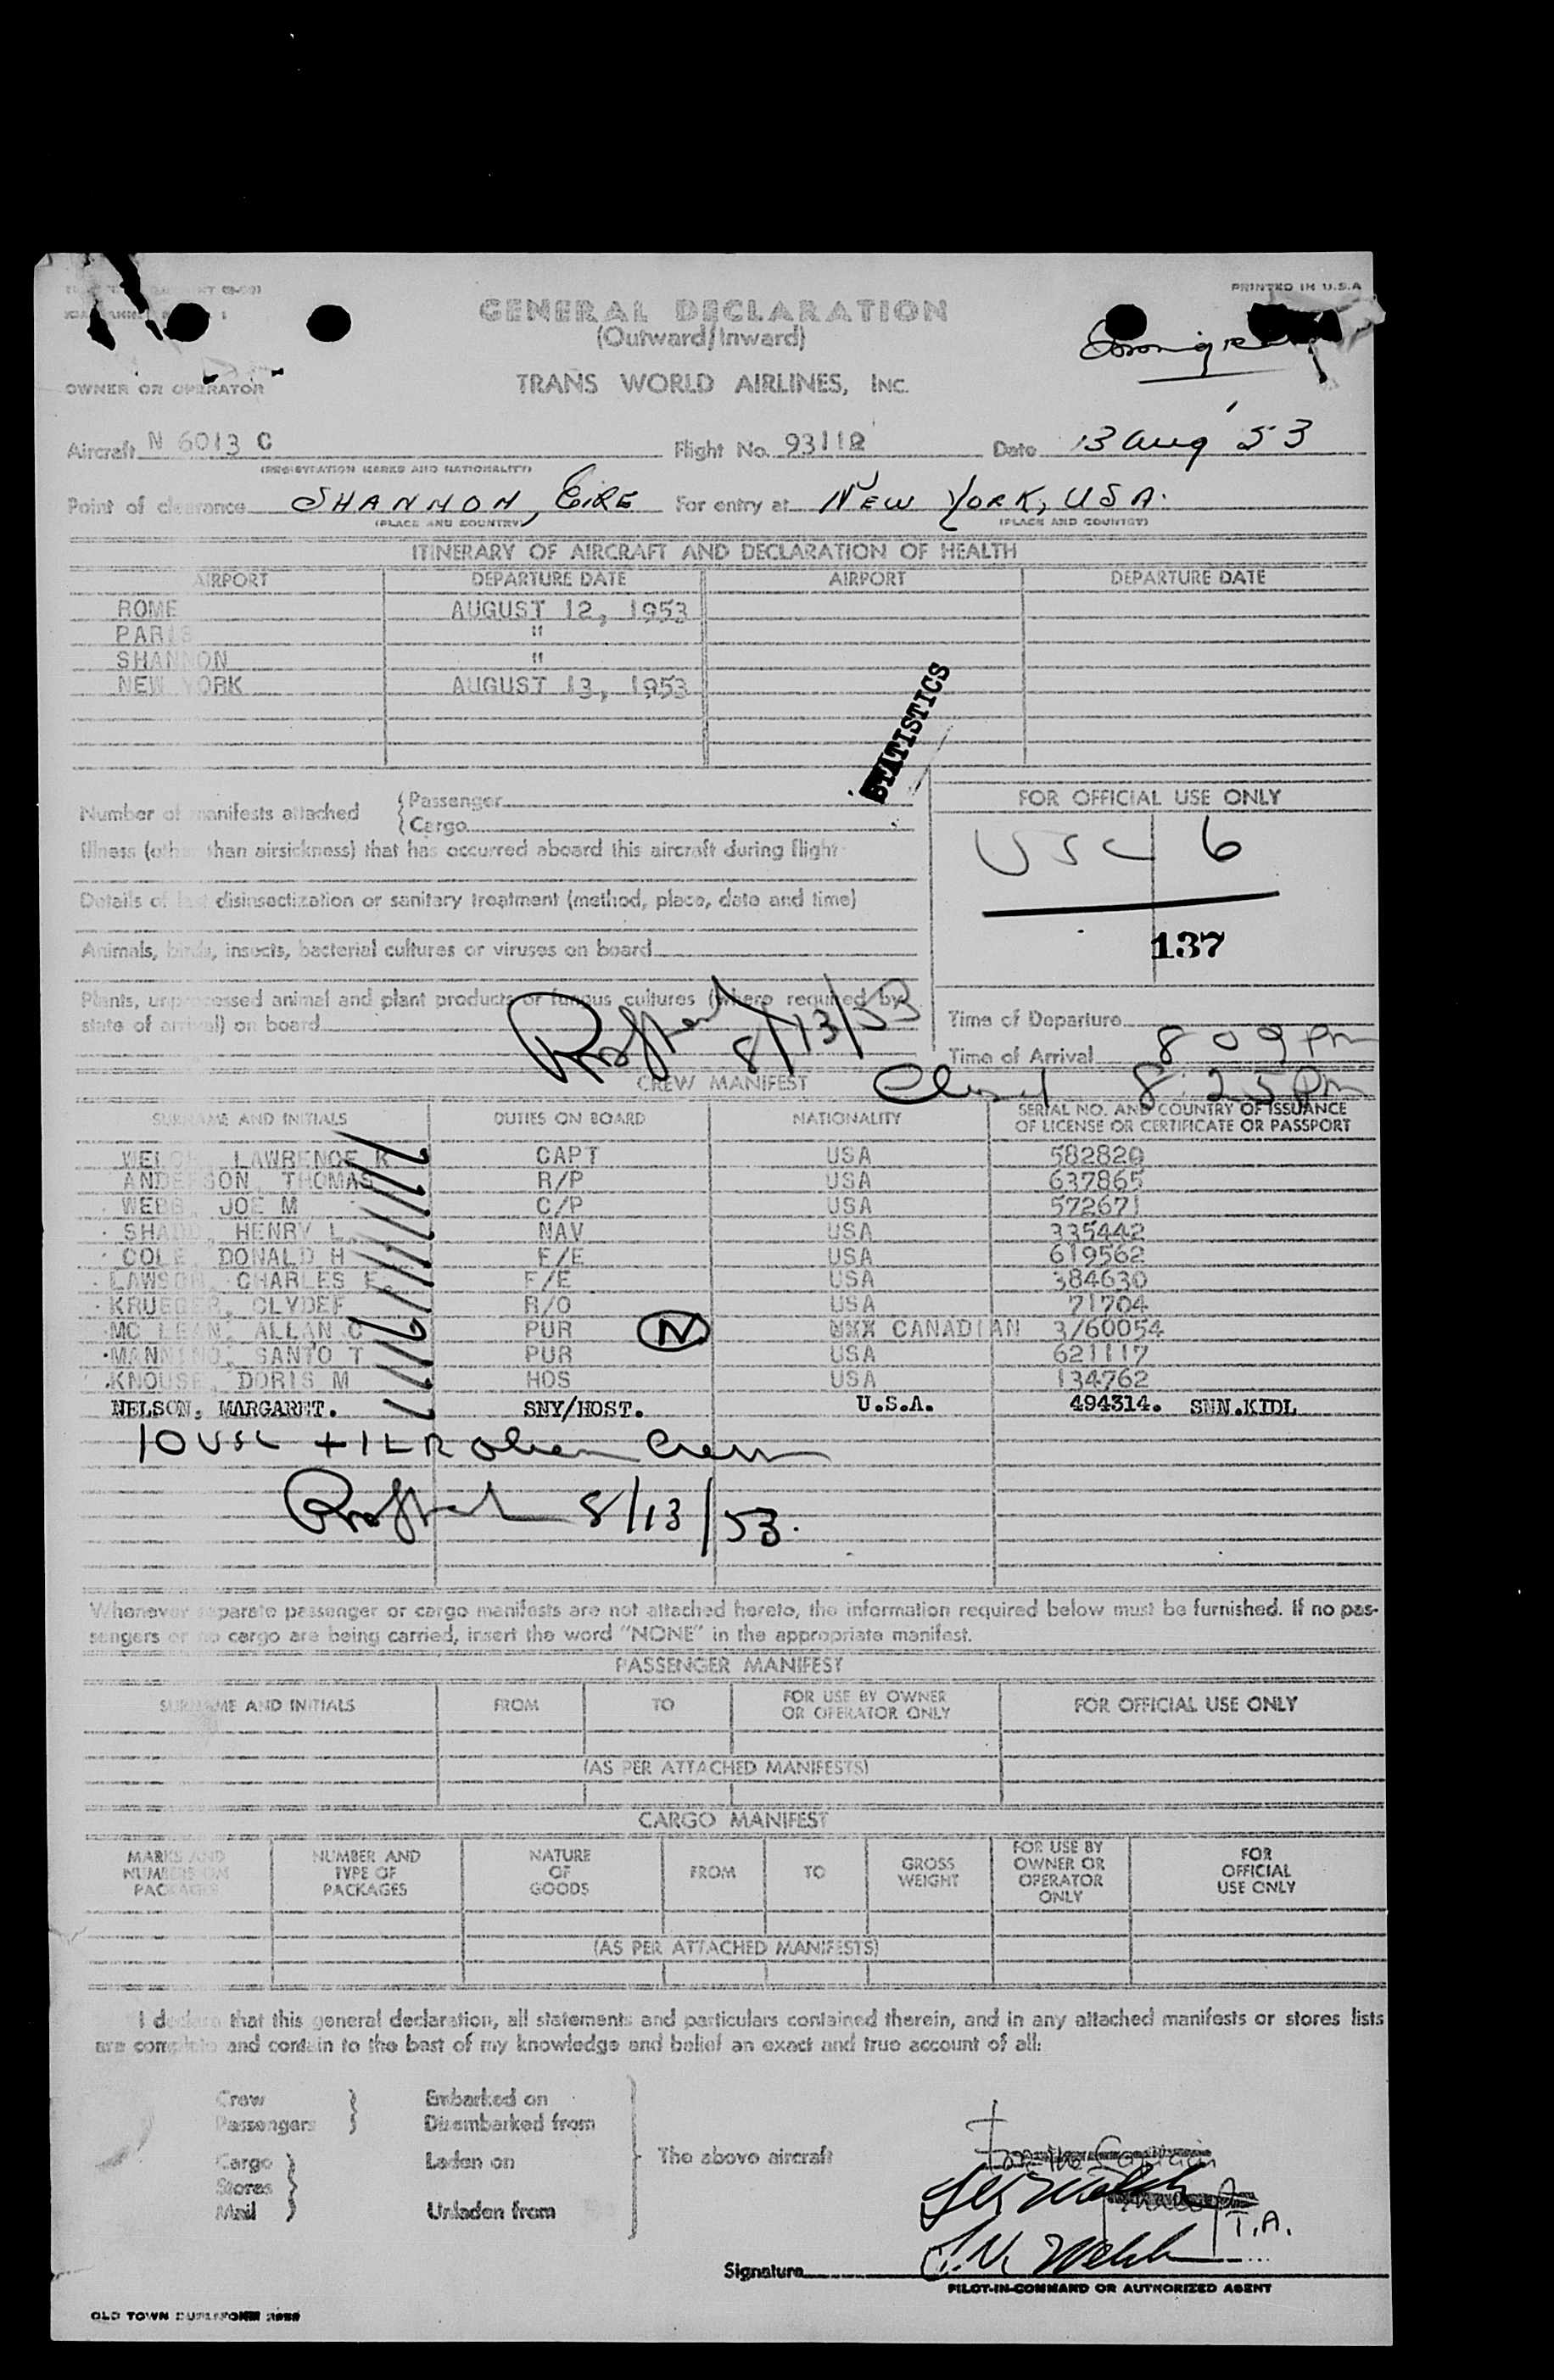 PRINTED IN U.S.A
GENERAL DECLARATION
(Outward/Inward)
OWNER OR OPERATOR
TRANS WORLD AIRLINES, INC.
Aircraft N 6013 C Flight No. 93112 Date 13 Aug '53
(REGISTRATION MARKS AND NATIONALITY)
Point of clearance SHANNON, EIRE For entry at NEW YORK, USA.
(PLACE AND COUNTRY) (PLACE AND COUNTRY)
ITINERARY OF AIRCRAFT AND DECLARATION OF HEALTH
AIRPORT DEPARTURE DATE AIRPORT DEPARTURE DATE
ROME AUGUST 12, 1953
PARIS "
SHANNON "
NEW YORK AUGUST 13, 1953
STATISTICS
Number of manifests attached { Passenger
{ Cargo
FOR OFFICIAL USE ONLY
Illness (other than airsickness) that has occurred aboard this aircraft during flight
USC 6
Details of last disinsectization or sanitary treatment (method, place, date and time)
Animals, birds, insects, bacterial cultures or viruses on board
137
Plants, unprocessed animal and plant products or fungus cultures (where required by
state of arrival) on board
8/13/53
Time of Departure
Time of Arrival 8 09 Pm
CREW MANIFEST
8:25 Pm
SURNAME AND INITIALS DUTIES ON BOARD NATIONALITY SERIAL NO. AND COUNTRY OF ISSUANCE
OF LICENSE OR CERTIFICATE OR PASSPORT
WELCH, LAWRENCE K CAPT USA 582820
ANDERSON, THOMAS R/P USA 637865
WEBB, JOE M C/P USA 572671
SHADD, HENRY L. NAV USA 335442
COLE, DONALD H F/E USA 619562
LAWSON, CHARLES E. F/E USA 384630
KRUEGER, CLYDEF R/O USA 71704
MC LEAN, ALLAN C PUR N CANADIAN 3/60054
MANNINO, SANTO T PUR USA 621117
KNOUSE, DORIS M HOS USA 134762
NELSON, MARGARET. SNY/HOST. U.S.A. 494314. SNN.KIDL
10 USC + 1 LR Alien Crew
8/13/53.
Whenever separate passenger or cargo manifests are not attached hereto, the information required below must be furnished. If no pas-
sengers or no cargo are being carried, insert the word "NONE" in the appropriate manifest.
PASSENGER MANIFEST
SURNAME AND INITIALS FROM TO FOR USE BY OWNER OR OPERATOR ONLY FOR OFFICIAL USE ONLY
(AS PER ATTACHED MANIFESTS)
CARGO MANIFEST
MARKS AND NUMBERS ON PACKAGES NUMBER AND TYPE OF PACKAGES NATURE OF GOODS FROM TO GROSS WEIGHT FOR USE BY OWNER OR OPERATOR ONLY FOR OFFICIAL USE ONLY
(AS PER ATTACHED MANIFESTS)
I declare that this general declaration, all statements and particulars contained therein, and in any attached manifests or stores lists
are complete and contain to the best of my knowledge and belief an exact and true account of all:
Crew Embarked on
Passengers Disembarked from
Cargo Laden on The above aircraft
Stores
Mail Unladen from
T.A.
Signature
PILOT-IN-COMMAND OR AUTHORIZED AGENT
OLD TOWN